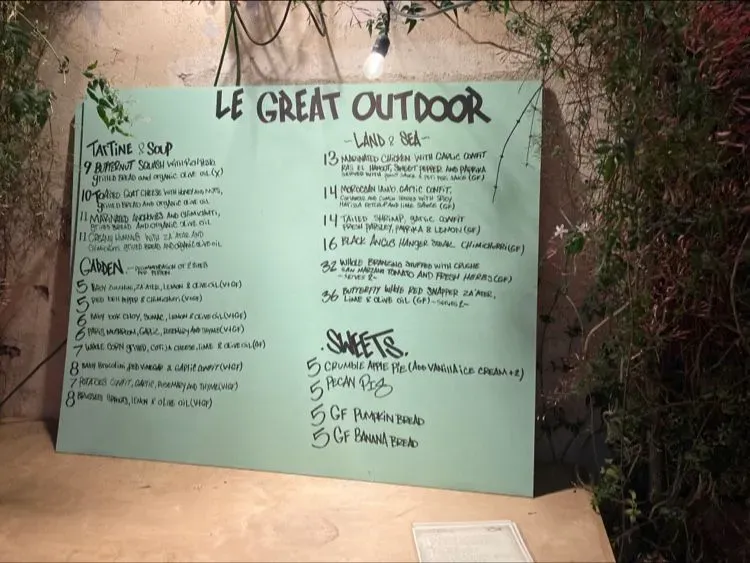 LE GREAT OUTDOOR
TARTINE & SOUP
9 BUTTERNUT SQUASH WITH
grilled BREAD and organic olive oil (V)
10 TOASTED GOAT CHEESE WITH HONEY AND NUTS,
GRILLED BREAD AND ORGANIC OLIVE OIL
11 MARINATED ANCHOVIES AND CHIMICHURRI,
GRILLED BREAD AND ORGANIC OLIVE OIL
11 CREAMY HUMMUS WITH ZA'ATER AND
CHIMICHURRI, GRILLED BREAD AND ORGANIC OLIVE OIL
GARDEN - RECOMMENDATION OF 2 SIDES
PER PERSON
5 BABY ZUCCHINI, ZA'ATER, LEMON & OLIVE OIL (V+GF)
5 RED BELL PEPPER & CHIMICHURRI (V+GF)
6 BABY BOK CHOY, SUMAC, LEMON & OLIVE OIL (V+GF)
6 PARIS MUSHROOM, GARLIC, ROSEMARY AND THYME (V+GF)
7 WHOLE CORN GRILLED, COTIJA CHEESE, LIME & OLIVE OIL (GF)
8 BABY BROCCOLINI, RED VINEGAR & GARLIC CONFIT (V+GF)
7 POTATOES CONFIT, GARLIC, ROSEMARY AND THYME (V+GF)
8 BRUSSELS SPROUTS, LEMON & OLIVE OIL (V+GF)
- LAND & SEA -
13 MARINATED CHICKEN WITH GARLIC CONFIT
RAS EL HANOUT, SWEET PEPPER AND PAPRIKA
SERVED WITH SAUCE & SAUCE (GF)
14 MOROCCAN LAMB, GARLIC CONFIT,
CORIANDER AND CUMIN SERVED WITH SPICY
HARISSA KETCHUP AND LIME SAUCE (GF)
14 TAILED SHRIMP, GARLIC CONFIT
FRESH PARSLEY, PAPRIKA & LEMON (GF)
16 BLACK ANGUS HANGER STEAK, CHIMICHURRI (GF)
32 WHOLE BRANZINO STUFFED WITH
SAN MARZANO TOMATO AND FRESH HERBS (GF)
- SERVES 2 -
36 BUTTERFLY WHOLE RED SNAPPER ZA'ATER,
LIME & OLIVE OIL (GF) - SERVES 2 -
. SWEETS .
5 CRUMBLE APPLE PIE (ADD VANILLA ICE CREAM +2)
5 PECAN PIE
5 GF PUMPKIN BREAD
5 GF BANANA BREAD